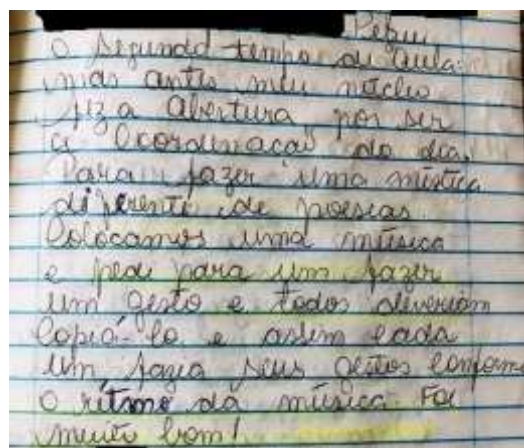 Peguei
o segundo tempo de aula
mas antes meu núcleo
fiz a abertura por ser
a Coordenação do dia.
Para fazer uma mística
diferente de poesias
Colocamos uma música
e pede para um fazer
um gesto e todos deveriam
Copiá-lo e assim cada
um fazia seus gestos conforme
o ritmo da música. Foi
muito bom!